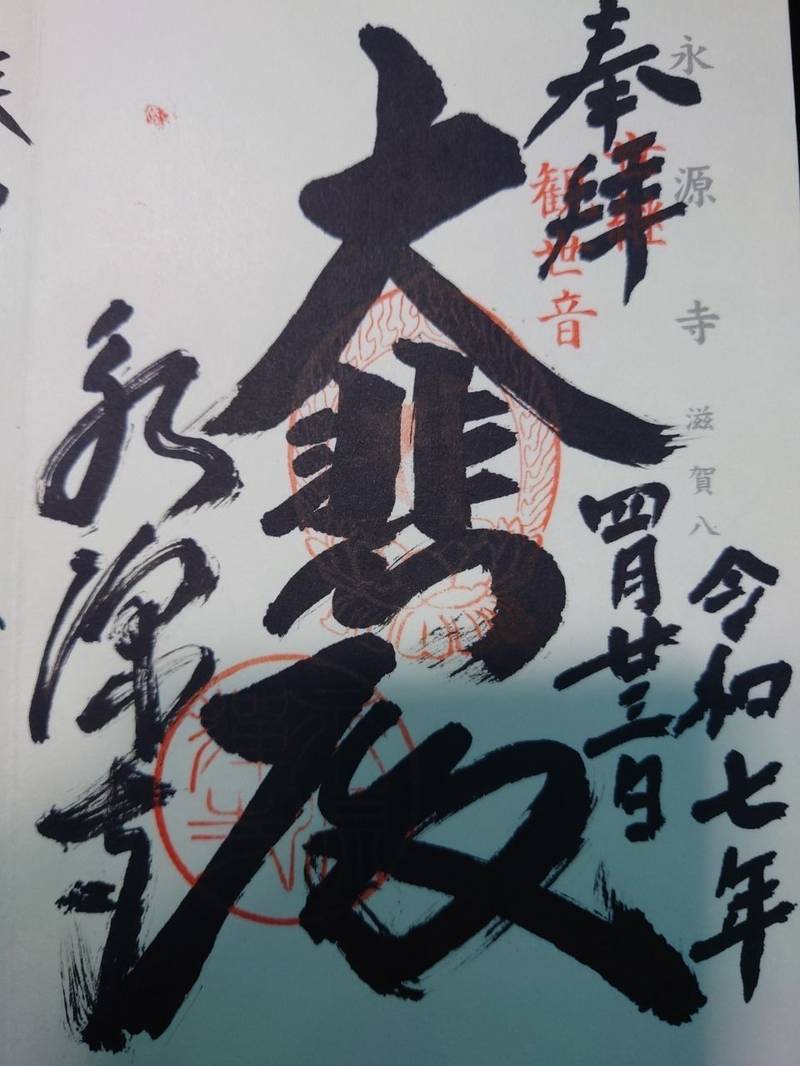 永源寺 滋賀八
令和七年
四月廿三日
奉拝
観世音
大悲殿
永源寺